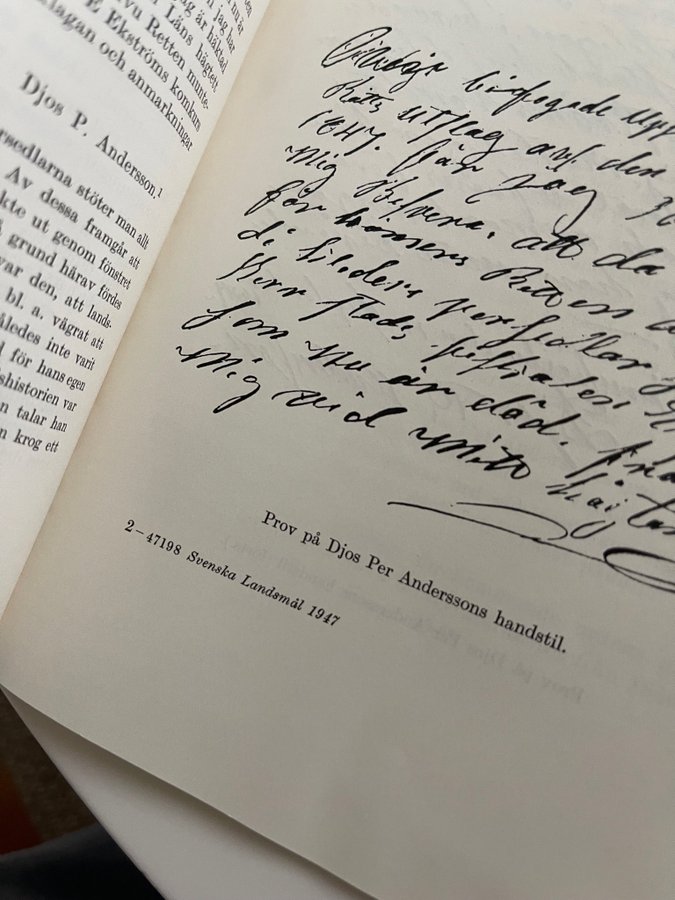 nu är
n jag har
ag är häktad
Läns hägtett
vu Retten munte-
E Ekströms konkurs
lagan och anmarkningar
Djos P. Andersson.¹
rsedlarna stöter man allt
Av dessa framgår att
kte ut genom fönstret
å grund härav fördes
var den, att lands-
bl. a. vägrat att
ledes inte varit
d för hans egen
shistorien var
n talar han
n krog ett
bifogade upp
Rätts utslag av den
1847. får jag
mig besvära, att da
för Retten
de
Herr Stads
som nu är död.
mig vid mitt
Prov på Djos Per Anderssons handstil.
2–47198 Svenska Landsmål 1947